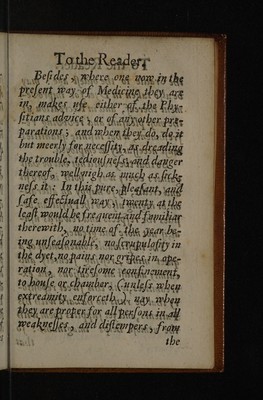 To the Reader
Besides, where one now in the
present way of Medicine they are
in, makes use either of the Phy-
sitians advice, or of any other pre-
parations; and when they do, do it
but meerly for necessity, as dreading
the trouble, tediousness, and danger
thereof, wellnigh as much as sick-
ness it: In this pure, pleasant, and
safe effectuall way, twenty at the
least would be frequent and familiar
therewith, no time of the year be-
ing unseasonable, no scrupulosity in
the dyet, no pains nor gripes in ope-
ration, nor tiresome confinement,
to house or chamber, (unless when
extreamity enforceth, nay when
they are proper for all persons in all
weaknesses, and distempers, from
the